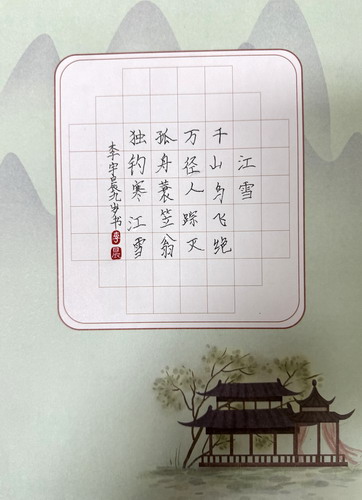 江雪
千山鸟飞绝
万径人踪灭
孤舟蓑笠翁
独钓寒江雪
李宇晨九岁书
李
晨